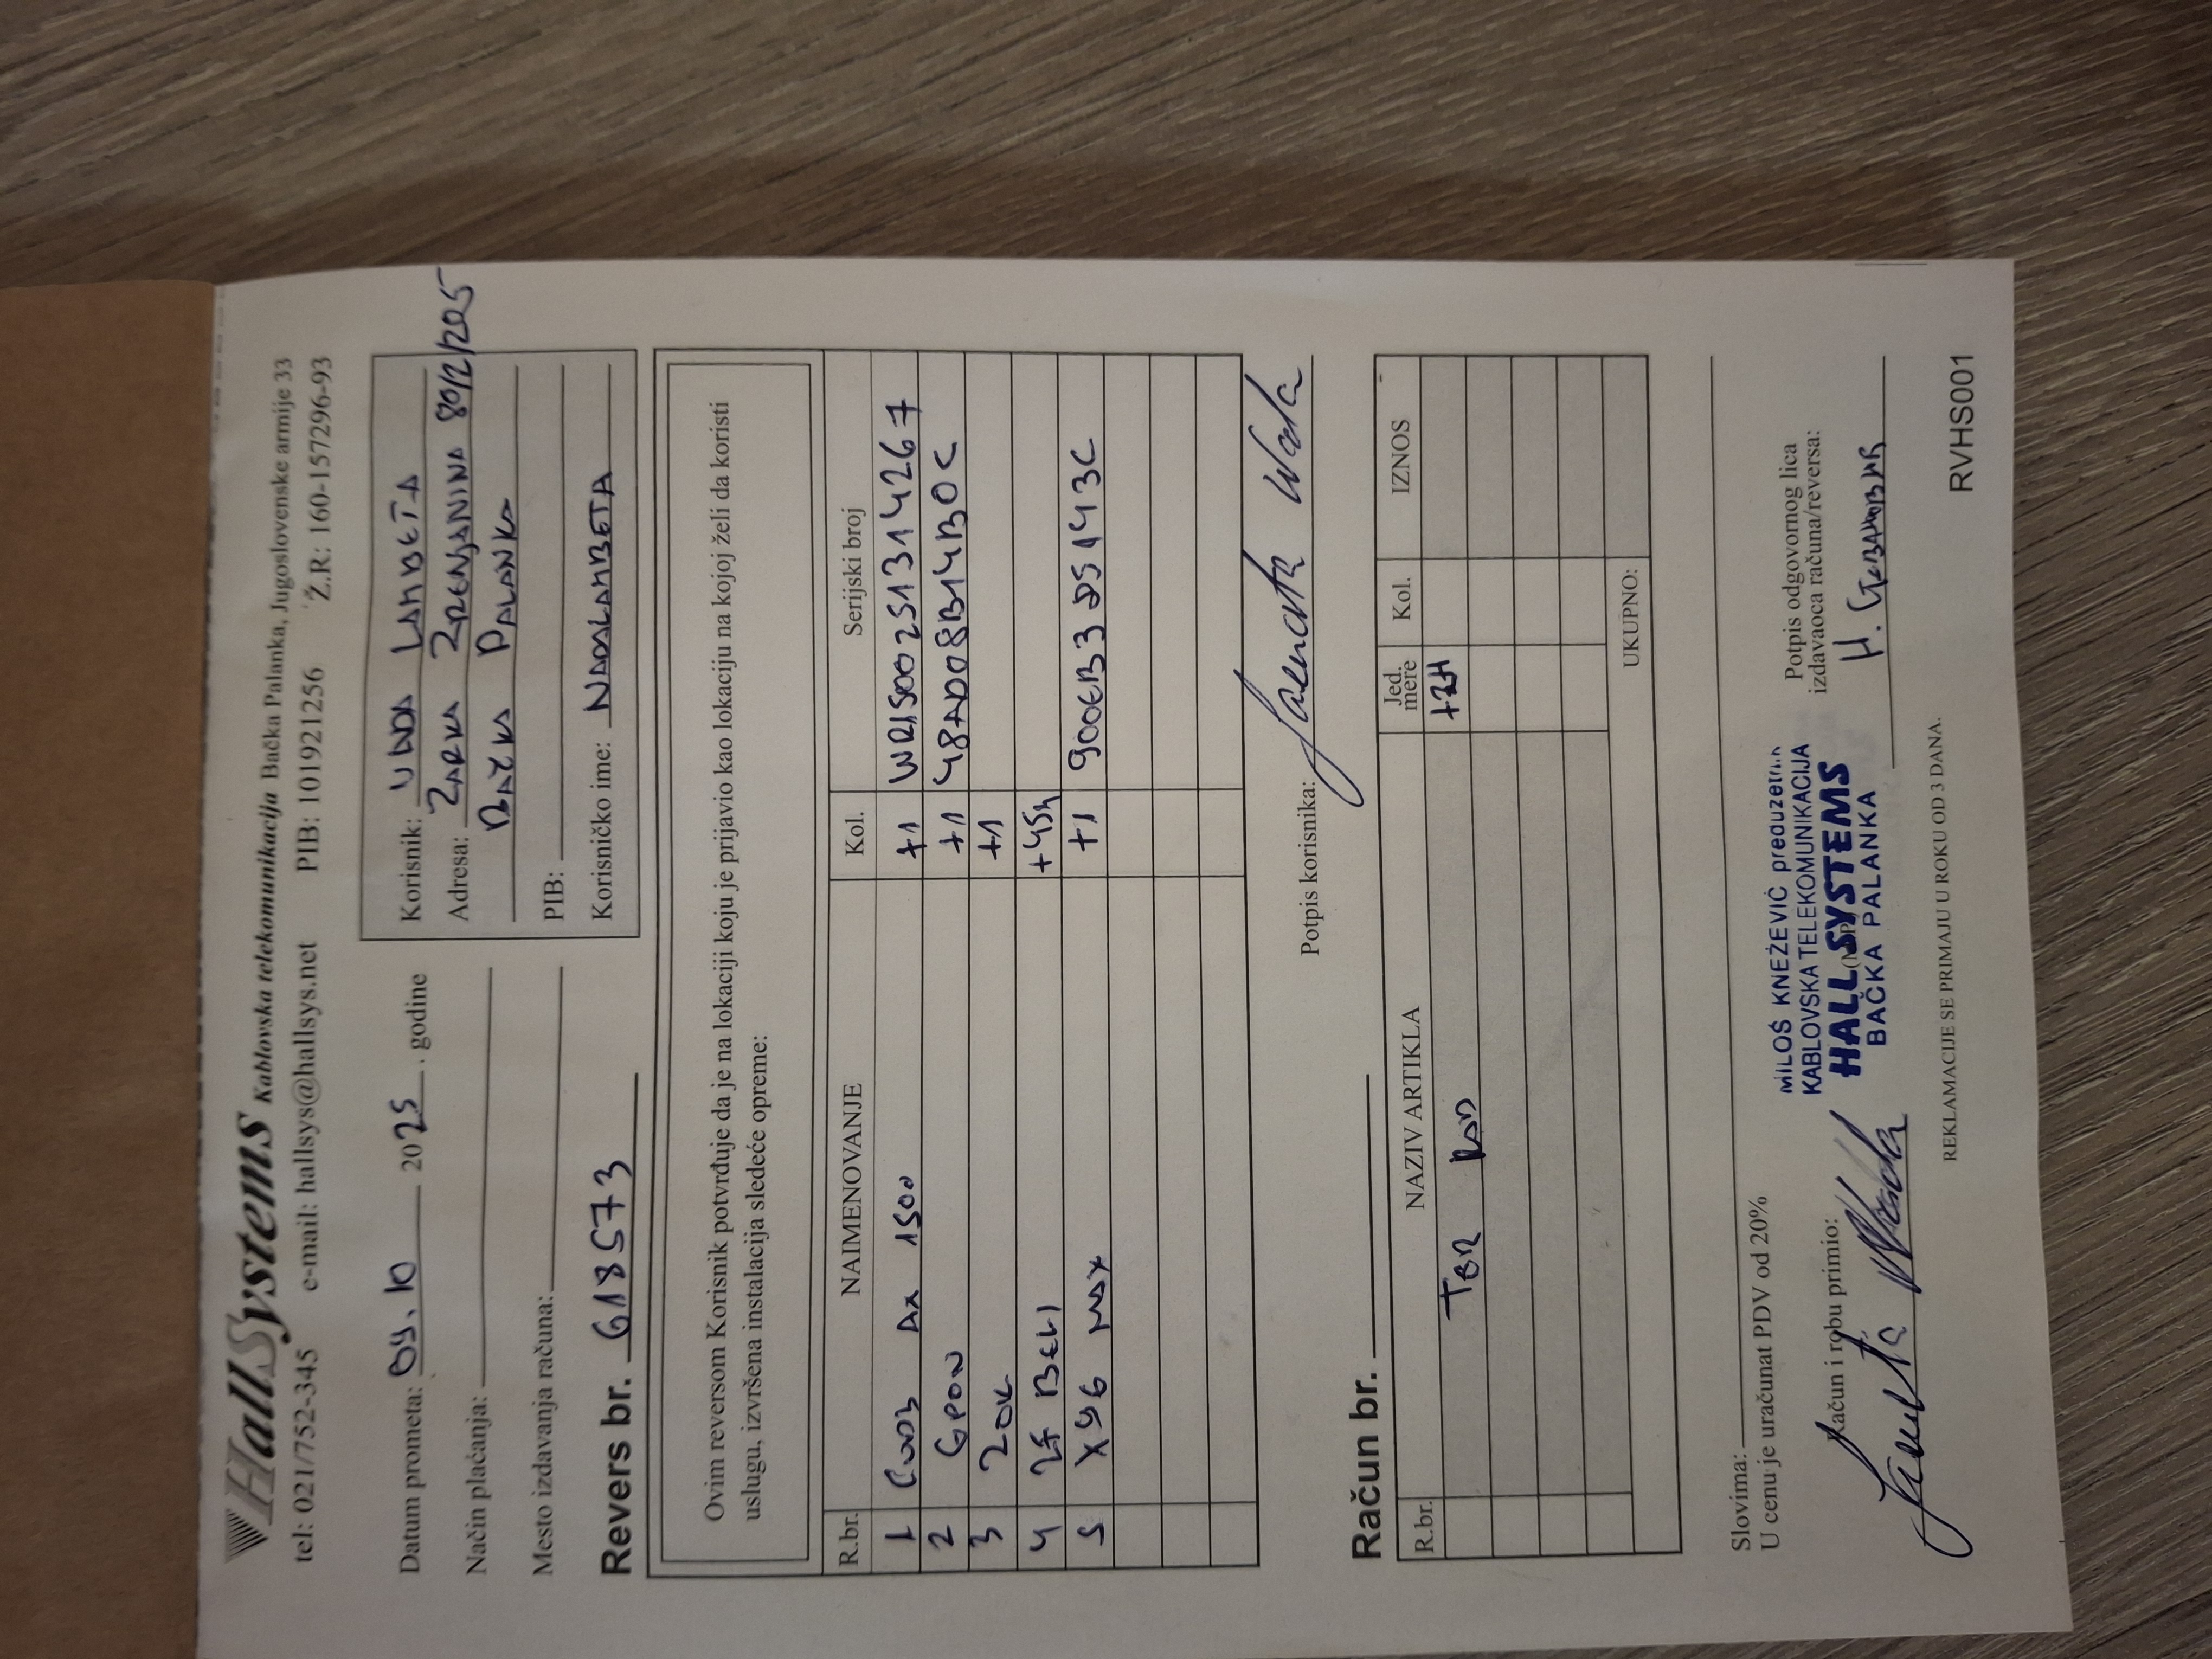 HallSystems Kablovska telekomunikacija Bačka Palanka, Jugoslovenske armije 33
tel: 021/752-345 e-mail: hallsys@hallsys.net PIB: 101921256 Ž.R: 160-157296-93
Datum prometa: 04.10 2025. godine
Način plaćanja:
Mesto izdavanja računa:
Korisnik: VLADA LAMBETA
Adresa: ŽARKA ZRENJANINA 80/2/205
BAČKA PALANKA
PIB:
Korisničko ime: NADALAMBETA
Revers br. 618573
Ovim reversom Korisnik potvrđuje da je na lokaciji koju je prijavio kao lokaciju na kojoj želi da koristi
uslugu, izvršena instalacija sledeće opreme:
R.br. NAIMENOVANJE Kol. Serijski broj
1 AX 1500 +1
2 GPON +1 48AD08B14B0C
3 ZOK +1
4 2F BELI +45m
5 X96 MAX +1
Potpis korisnika: Lambeta Vlada
Račun br.
R.br. NAZIV ARTIKLA Jed. mere Kol. IZNOS
+2H
UKUPNO:
Slovima:
U cenu je uračunat PDV od 20%
Račun i robu primio:
Lambeta Vlada
MILOŠ KNEŽEVIĆ preduzetnik
KABLOVSKA TELEKOMUNIKACIJA
HALL SYSTEMS
BAČKA PALANKA
Potpis odgovornog lica
izdavaoca računa/reversa:
REKLAMACIJE SE PRIMAJU U ROKU OD 3 DANA.
RVHS001